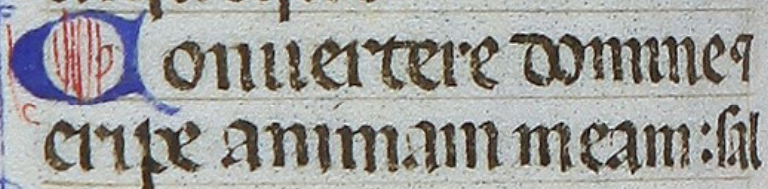 Conuertere domine ⁊
eripe animam meam : sal